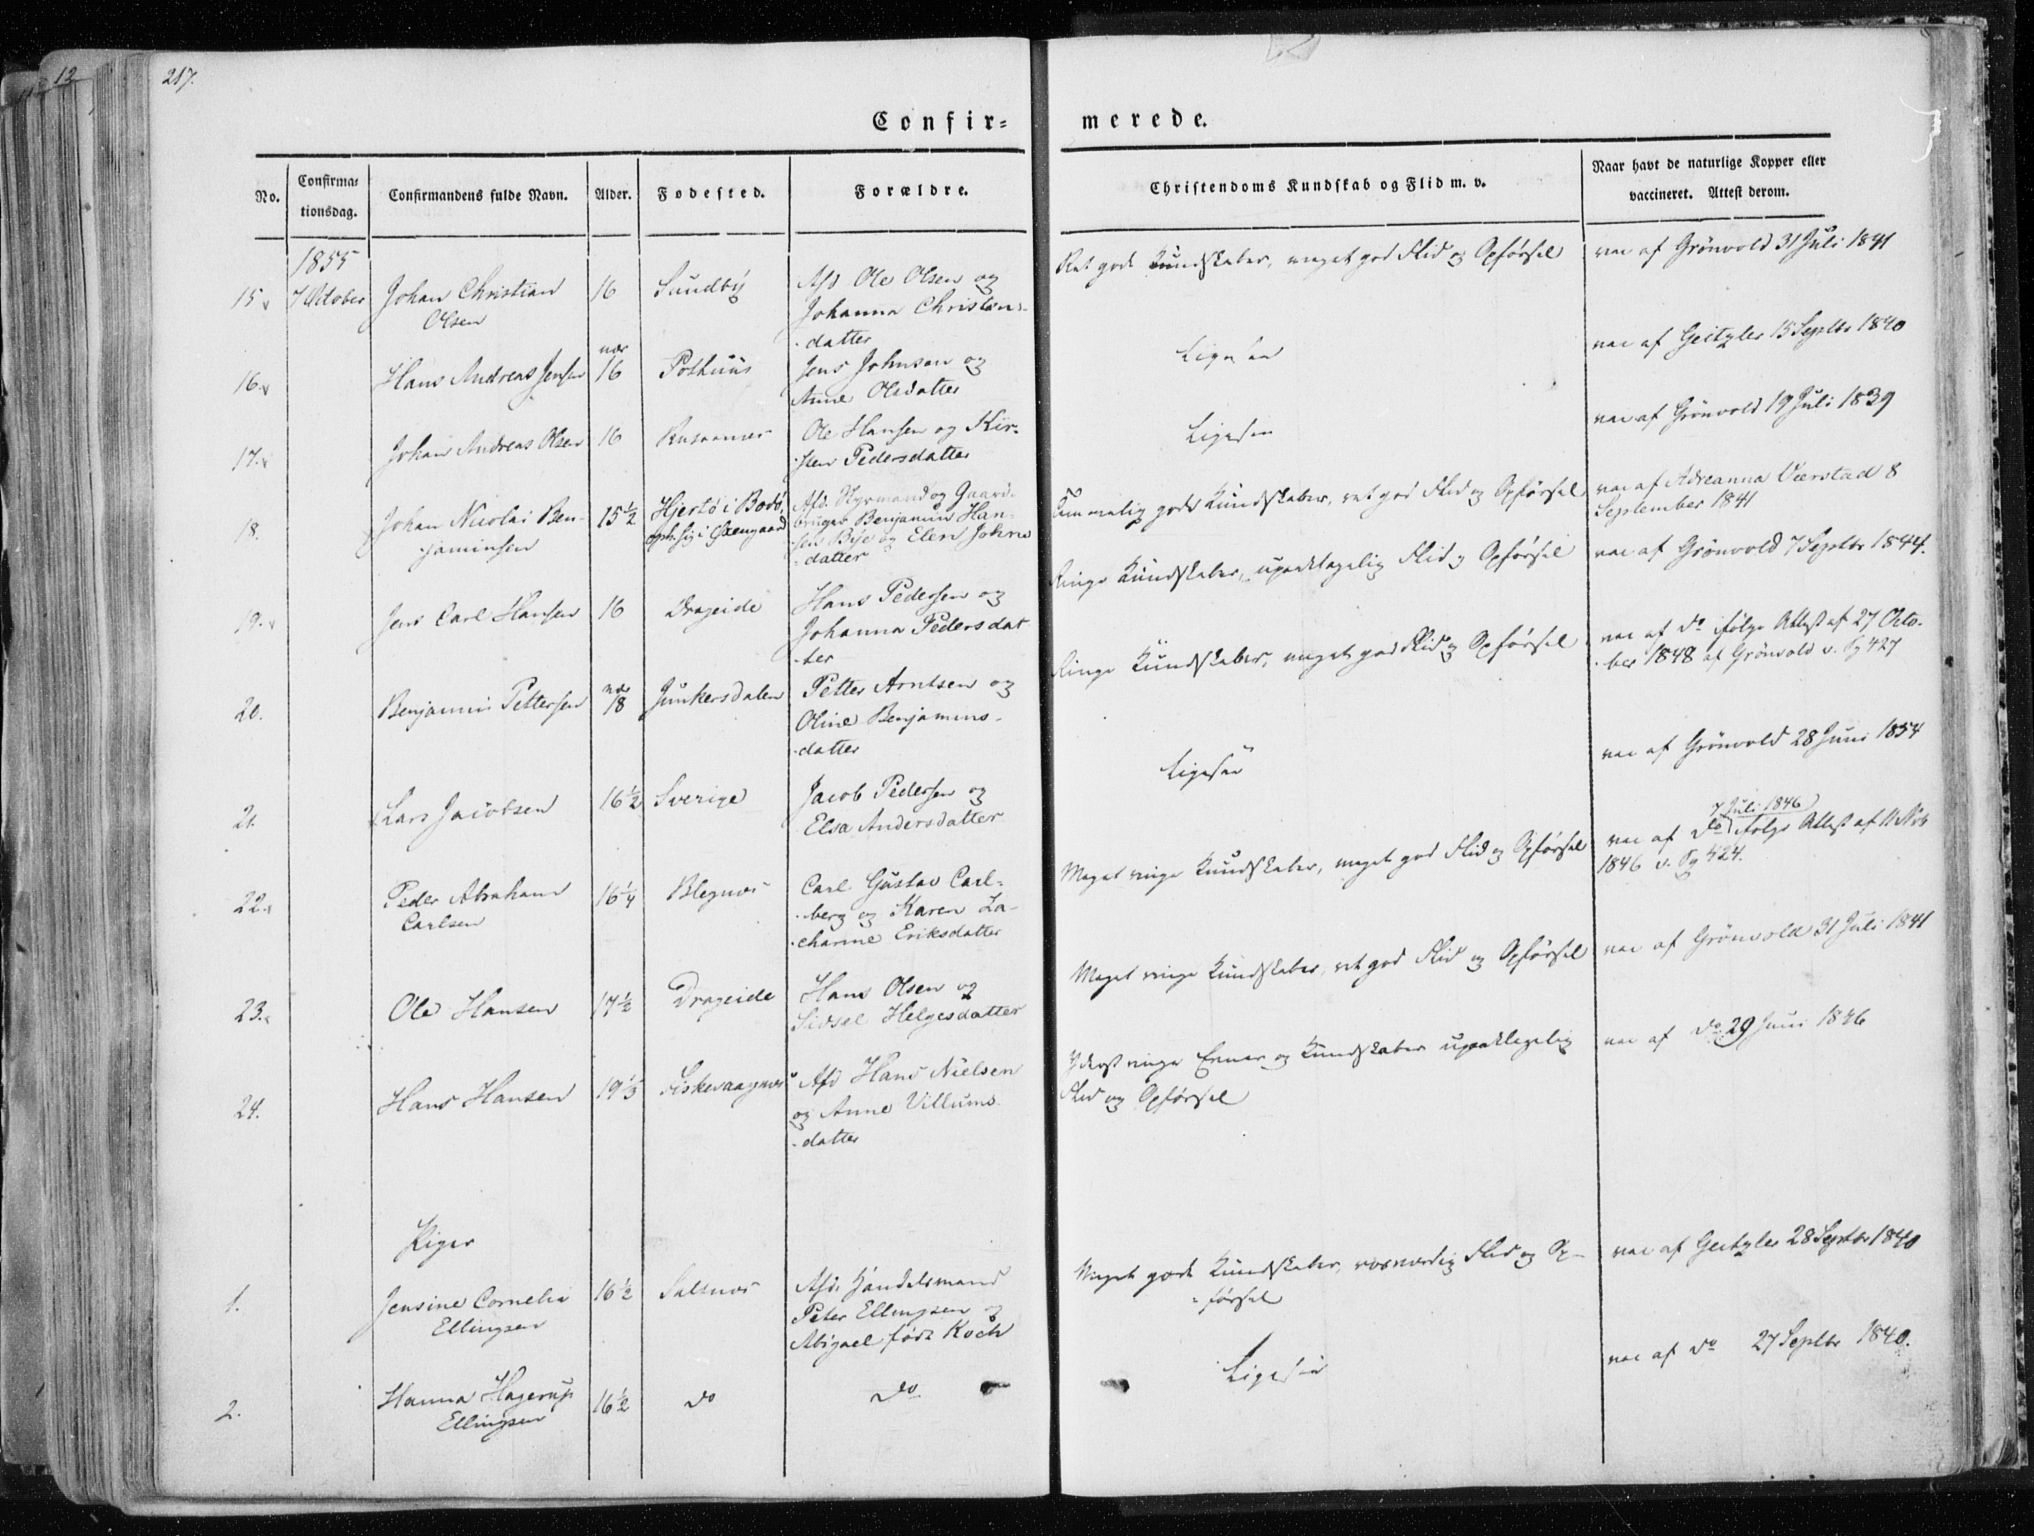 12
217.
Confir= merede.
No.
Confirma=
tionsdag.
Confirmandens fulde Navn.
Alder.
Fodested.
Forældre.
Christendoms Kundskab og Flid m. v.
Naar havt de naturlige Kopper eller
vaccineret. Attest derom.
1855
15. 7 October Johan Christian 16 Sundby Afd Ole Olsen og
Olsen Johanna Christens=
datter
Ret gode Kundskaber, meget god Flid og Opførsel
vac af Grönvold 31 Juli 1841
16. Hans Andreas Jensen nær 16 Pothuus Jens Johnsen og
Anne Olsdatter
Ligesaa
vac af Geitzler 15 Septbr 1840
17. Johan Andreas Olsen 16 Rusaanes Ole Hansen og Kir-
sten Pedersdatter
Ligesaa
vac af Grönvold 19 Juli 1839
18. Johan Nicolai Ben- 15½ Hjertø i Bodø,
jaminsen
Afd. Styrmand og Gaard-
bruger Benjamin Han-
sen og Elen Johns
datter
Temmelig gode Kundskaber, ret god Flid og Opførsel
vac af Adreanna Værstad 8
September 1841
19. Jens Carl Hansen 16 Drageide Hans Pedersen og
Johanna Pedersdat
ter
Ringe Kundskaber, upaaklagelig Flid og Opførsel
vac af Grönvold 7 Septbr 1844.
20. Benjamin Pettersen nær 18 Junkersdalen Petter Arntsen og
Oline Benjamins-
datter
Ringe Kundskaber, meget god Flid og Opførsel
vac af do ifølge Attest af 27 Octo-
ber 1848 af Grönvold v. Pg 427
21. Lars Jacobsen 16½ Sverige Jacob Pedersen og
Elsa Andersdatter
Ligesaa
vac af Grönvold 28 Juni 1854
22. Peder Abraham 16¼ Blegnes Carl Gustav Carl-
Carlsen berg og Karen Za-
charine Eriksdatter
Meget ringe Kundskaber, meget god Flid og Opførsel
7 Juli 1846
vac af do ifølge Attest af 11 Nov
1846 v. Pg 424.
23. Ole Hansen 17½ Drageide Hans Olsen og
Sidsel Helgesdatter
Meget ringe Kundskaber, ret god Flid og Opførsel
vac af Grönvold 31 Juli 1841
24. Hans Hansen 19⅓ Fiskevaagnes Afd Hans Nielsen
og Anne Villums
datter
Yderst ringe Evner og Kundskaber upaaklagelig
Flid og Opførsel
vac af do 29 Juni 1846
Piger
1. Jensine Cornelia 16½ Saltnes Afd. Handelsmand
Ellingsen Peter Ellingsen og
Abigael født Koch
Meget gode Kundskaber, rosværdig Flid og Op-
førsel
vac af Geitzler 28 Septbr 1840
2. Hanna Hagerup 16½ do do
Ellingsen
Ligesaa
vac af do 27 Septbr 1840.